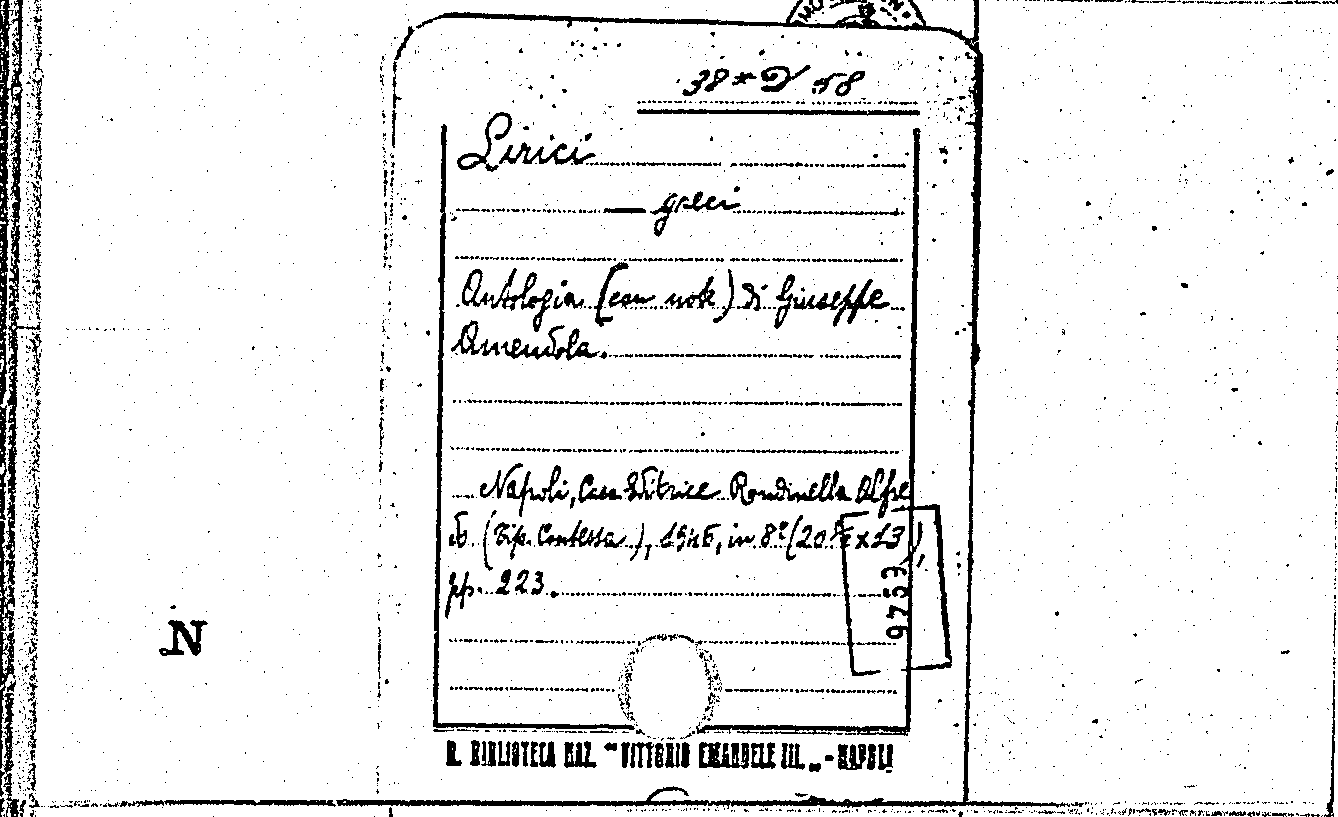 38* D 58
Lirici
— greci
Antologia (con note) di Giuseppe
Amendola.
Napoli, Casa Editrice Rondinella Alfre
do (Tip. Contessa), 1946, in 8º (20 x 13),
pp. 223.
9753
N
R. BIBLIOTECA NAZ. "VITTORIO EMANUELE III." - NAPOLI